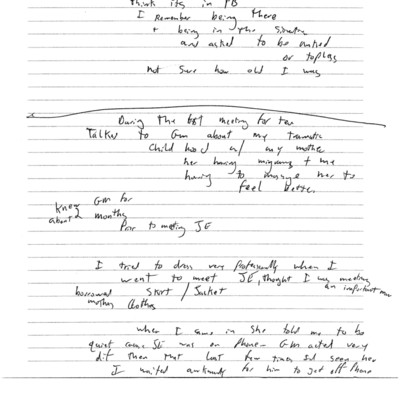 think its in PB
I remember being there
+ being in the
and asked to be naked
or topless
not sure how old I was
During the 1st meeting for tea
Talked to GM about my traumatic
child hood w/ my mother
her having migraines + me
having to massage her to
feel better
knew GM for
about 2 months
Prior to meeting JE
I tried to dress very professionally when I
went to meet JE, thought I was meeting
an important man
borrowed skirt / Jacket
mothers clothes
when I came in she told me to be
quiet cause JE was on phone - GM acted very
dif then that last few times I'd seen her
I waited awkwardly for him to get off phone